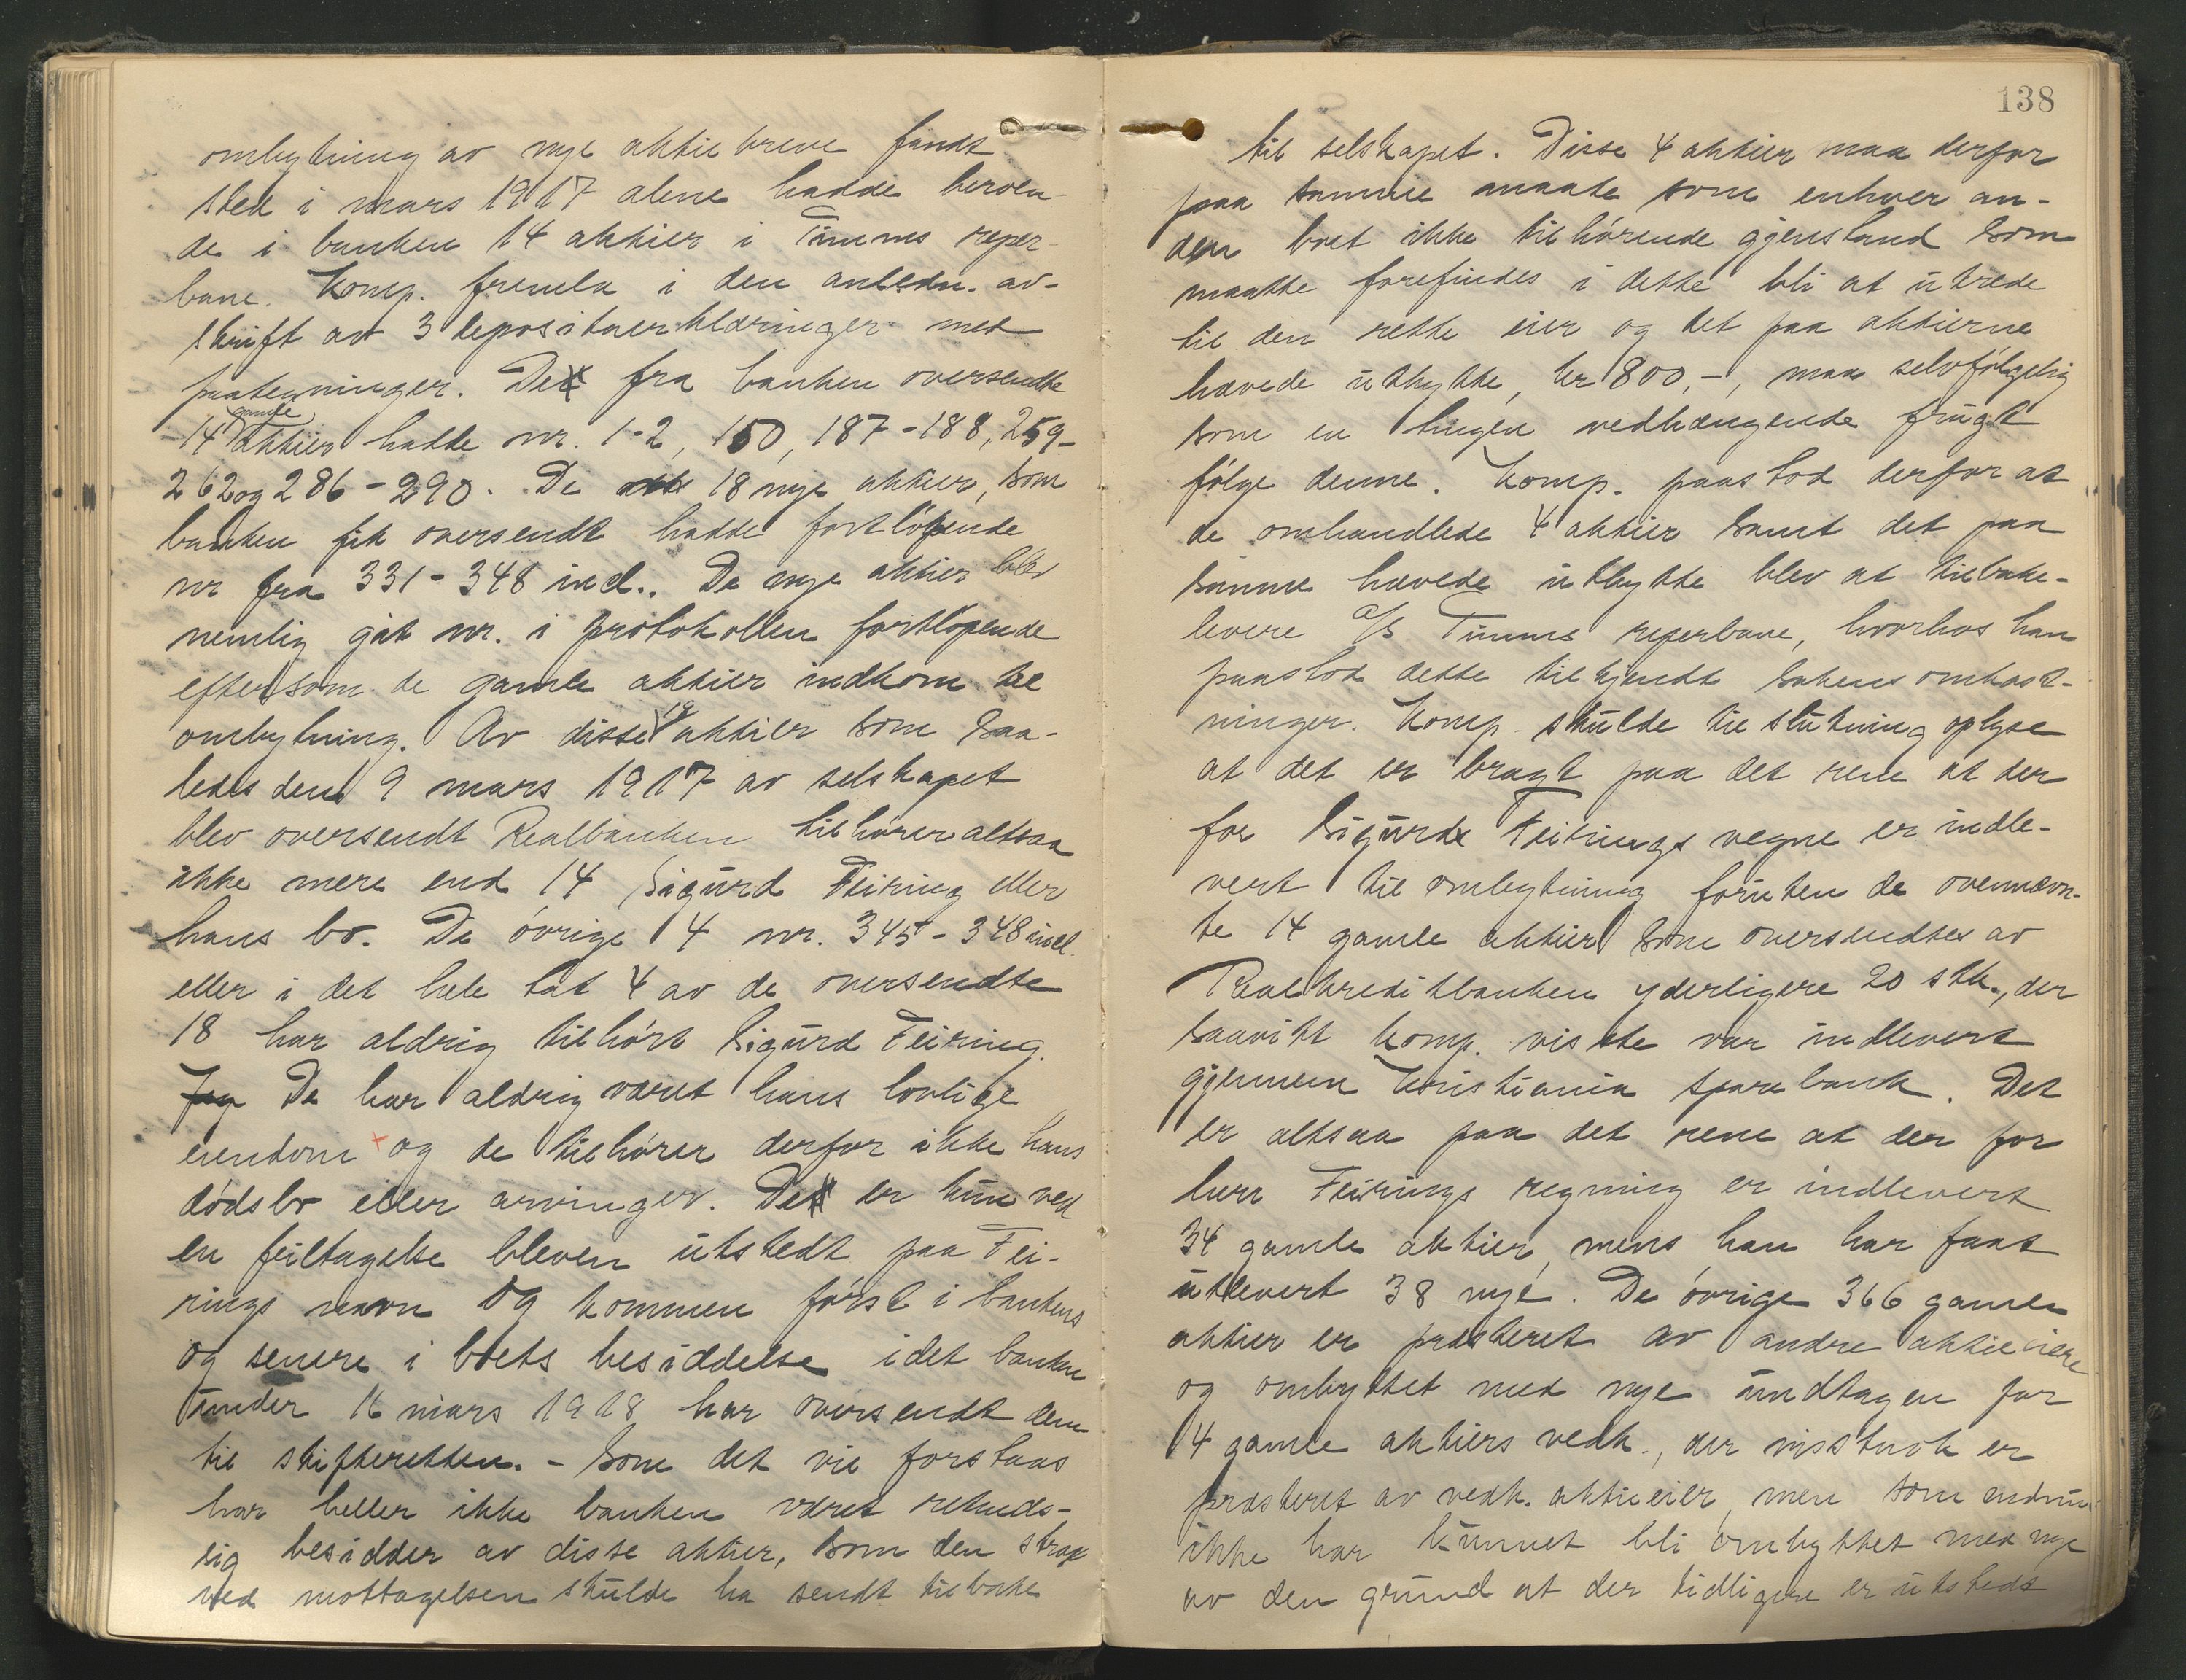 ombytning av nye aktiebreve fandt
sted i mars 1917 alene hadde beroen-
de i banken 14 aktier i Timms reper-
bane. Komp. fremla i den anledn. av-
skrift av 3 depositaerklæringer med
paategninger. De fra banken oversendte
14 gamle aktier hadde nr. 1-2, 150, 187-188, 259-
262 og 286-290. De 18 nye aktier, som
banken fik oversendt hadde fortløpende
nr fra 331-348 incl.. De nye aktier blev
nemlig git nr. i protokollen fortløpende
eftersom de gamle aktier indkom til
ombytning. Av disse 18 aktier som saa-
ledes den 9 mars 1917 av selskapet
blev oversendt Realbanken tilhører altsaa
ikke mere end 14 Sigurd Feiring eller
hans bo. De øvrige 4 nr. 345-348 incl.
eller i det hele tat 4 av de oversendte
18 har aldrig tilhørt Sigurd Feiring.
Jeg De har aldrig været hans lovlige
eiendom og de tilhører derfor ikke hans
dødsbo eller arvinger. De er kun ved
en feiltagelse bleven utstedt paa Fei-
rings navn og kommen først i bankens
og senere i boets besiddelse idet banken
under 16 mars 1918 har oversendt dem
til skifteretten. - Som det vil forstaas
har heller ikke banken været retmæs-
sig besidder av disse aktier, som den strax
ved mottagelsen skulde ha sendt tilbake
138
til selskapet. Disse 4 aktier maa derfor
paa samme maate som enhver an-
den boet ikke tilhørende gjenstand som
maatte forefindes i dette bli at utrede
til den rette eier og det paa aktierne
hævede utbytte, kr 800,-, maa selvfølgelig
som en tingen vedhængende frugt
følge denne. Komp. paastod derfor at
de omhandlede 4 aktier samt det paa
samme hævede utbytte blev at tilbake-
levere a/s Timms reperbane, hvorhos han
paastod dette tilkjendt sakens omkost-
ninger. Komp. skulde til slutning oplyse
at det er bragt paa det rene at der
for Sigurd Feirings vegne er indle-
vert til ombytning foruten de ovennævn-
te 14 gamle aktier som oversendtes av
Realkreditbanken yderligere 20 stk., der
saavidt komp. visste var indlevert
gjennem Kristiania sparebank. Det
er altsaa paa det rene at der for
herr Feirings regning er indlevert
34 gamle aktier, mens han har faat
utlevert 38 nye. De øvrige 366 gamle
aktier er præsteret av andre aktieeiere
og ombyttet med nye undtagen for
4 gamle aktiers vedk., der visstnok er
præsteret av vedk. aktieeier, men som endnu
ikke har kunnet bli ombyttet med nye
av den grund at der tidligere er utstedt